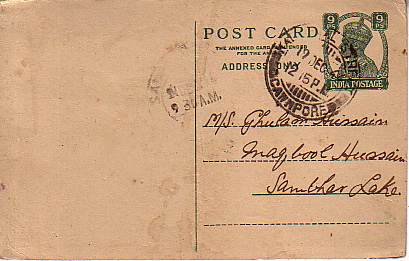 POST CARD
THE ANNEXED CARD IS INTENDED
FOR THE ANSWER
ADDRESS ONLY
9 Ps 9 Ps
INDIA POSTAGE
19 DEC
12.15 P.M.
CAWNPORE
9.30 A.M.
M/S. Ghulam Hussain
Maqbool Hussain
Sambhar Lake.